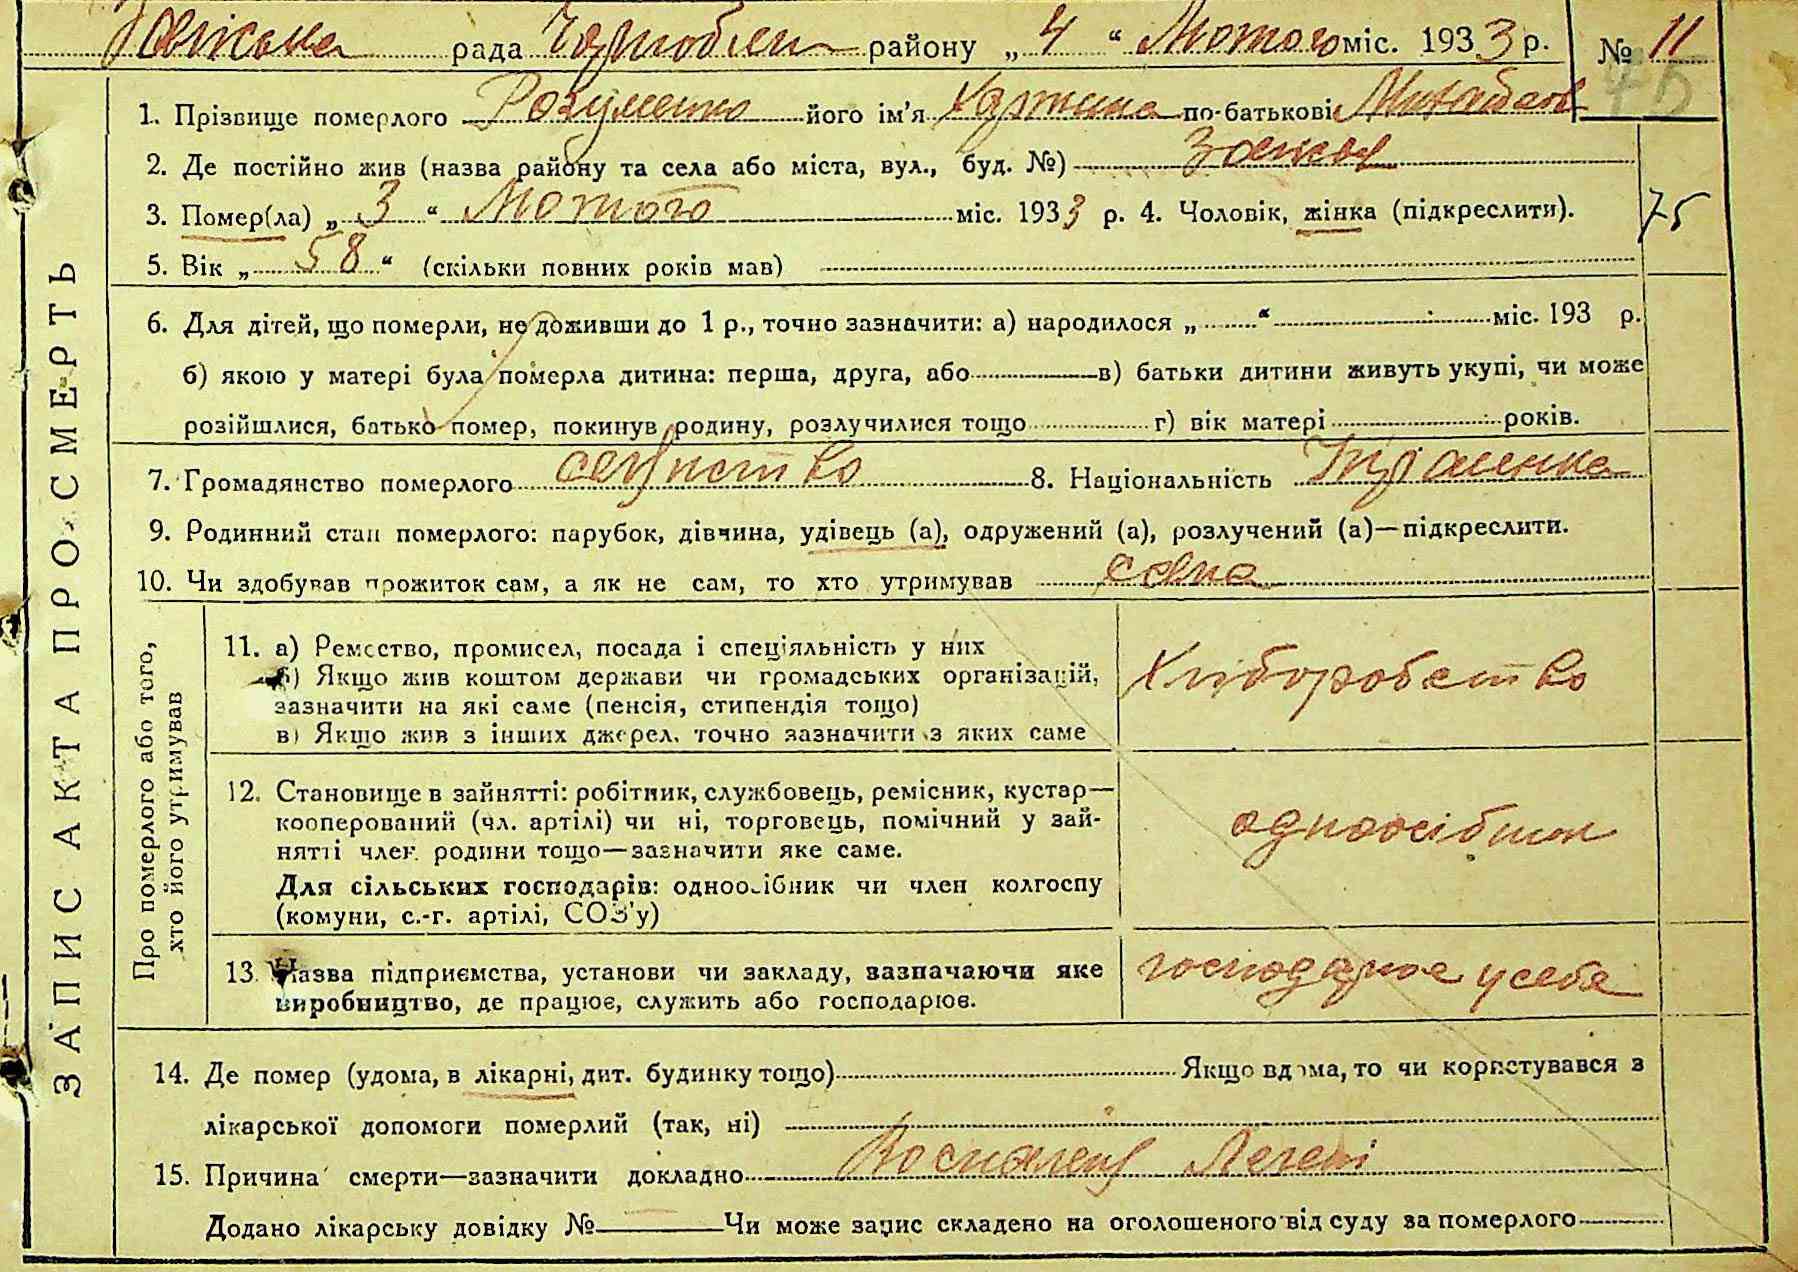 рада Чорнобильск району „ 4 “ Лютого міс. 1933 р. № 11
1. Прізвище померлого Розуменко його ім'я по-батькові
2. Де постійно жив (назва району та села або міста, вул., буд. №)
3. Помер(ла) „ 3 “ Лютого міс. 1933 р. 4. Чоловік, жінка (підкреслити).
75
5. Вік „ 58 “ (скільки повних років мав)
6. Для дітей, що померли, не доживши до 1 р., точно зазначити: а) народилося „ “ міс. 193 р.
б) якою у матері була померла дитина: перша, друга, або в) батьки дитини живуть укупі, чи може
розійшлися, батько помер, покинув родину, розлучилися тощо г) вік матері років.
7. Громадянство померлого 8. Національність Українка
9. Родинний стан померлого: парубок, дівчина, удівець (а), одружений (а), розлучений (а)—підкреслити.
10. Чи здобував прожиток сам, а як не сам, то хто утримував сама
ЗАПИС АКТА ПРО СМЕРТЬ
Про померлого або того,
хто його утримував
11. а) Ремество, промисел, посада і спеціяльність у них
б) Якщо жив коштом держави чи громадських організацій,
зазначити на які саме (пенсія, стипендія тощо)
в) Якщо жив з інших джерел, точно зазначити з яких саме
Хліборобство
12. Становище в зайнятті: робітник, службовець, ремісник, кустар—
кооперований (чл. артілі) чи ні, торговець, помічний у зай-
нятті член родини тощо—зазначити яке саме.
Для сільських господарів: одноосібник чи член колгоспу
(комуни, с.-г. артілі, СОЗ'у)
одноосібник
13. Назва підприємства, установи чи закладу, зазначаючи яке
виробництво, де працює, служить або господарює.
господарює у себе
14. Де помер (удома, в лікарні, дит. будинку тощо) Якщо вдома, то чи користувався з
лікарської допомоги померлий (так, ні)
15. Причина смерти—зазначити докладно Воспаления Легені
Додано лікарську довідку № Чи може запис складено на оголошеного від суду за померлого